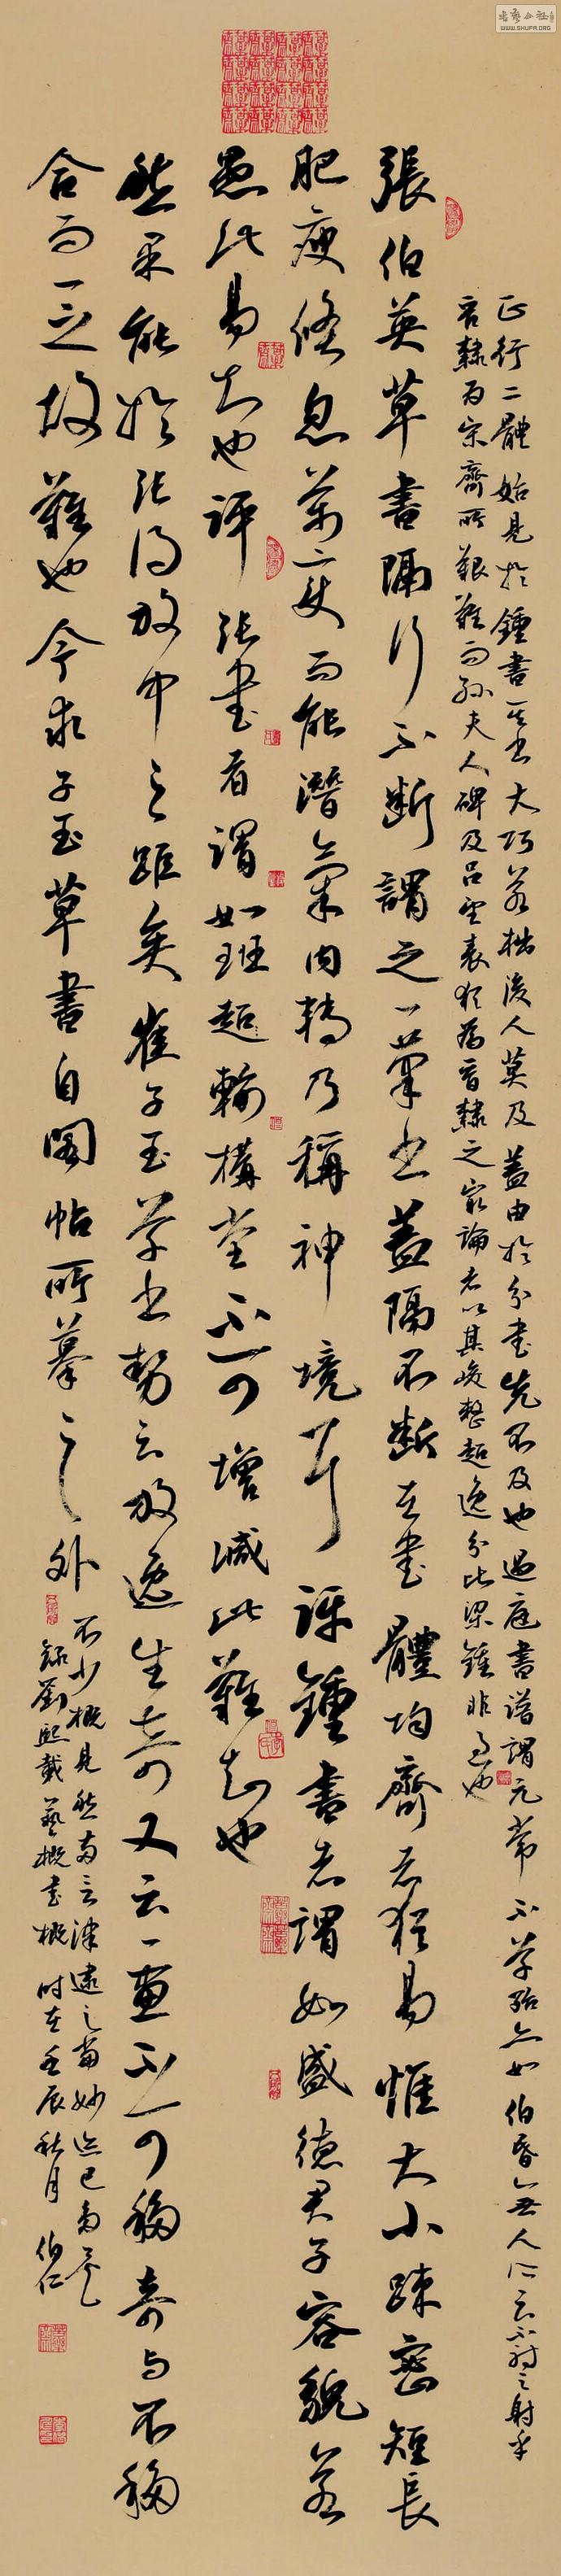 正行二體始見於鍾書其書大巧若拙後人莫及蓋由於分書先不及也過庭書譜謂元常不草殆亦如伯昏無人所云不射之射乎
晉隸為宋齊所難而孫夫人碑及呂望表猶為晉隸之最論者以其峻整超逸分比梁鍾非過也
張伯英草書隔行不斷謂之一筆書蓋隔不斷在書體均齊者猶易惟大小疎密短長
肥瘦倏忽萬變而能潛氣內轉乃稱神境耳評鍾書者謂如盛德君子容貌若
愚此易知也評張書者謂如班超輸構堂不可增減此難知也
然果能於張得放中之距矣崔子玉草書勢云放逸生奇又云一畫不可移奇與不移
合而一之故難也今求子玉草書自閣帖所摹之外
不少概見然兩言津逮之當妙迹已
錄劉熙載藝概書概時在壬辰秋月伯仁
WWW.SHUFA.ORG